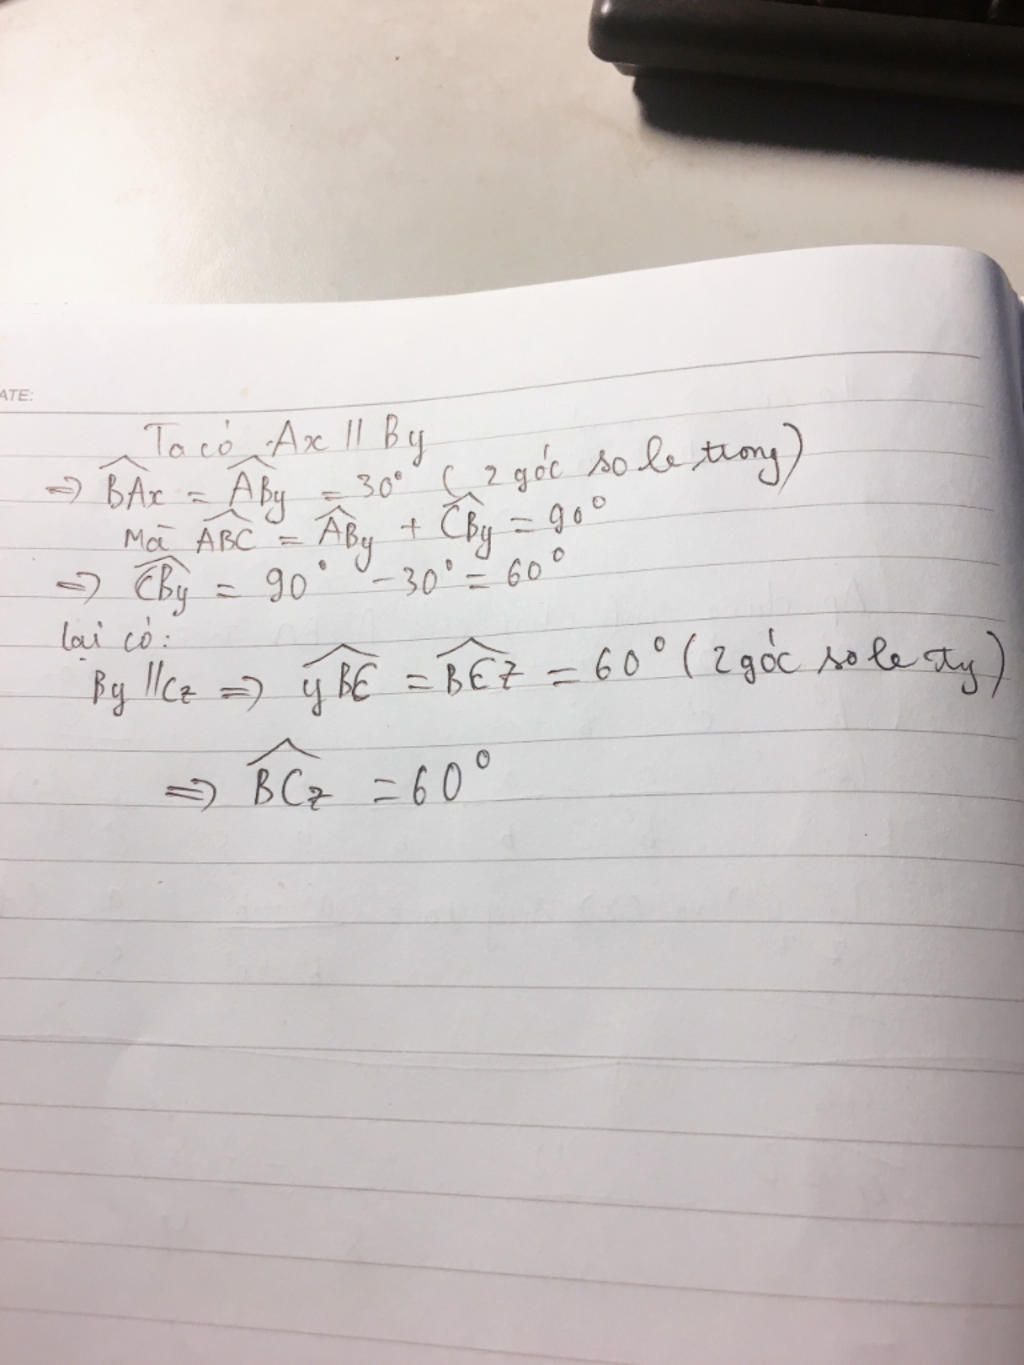 ATE:
Ta có Ax // By
=> BAx = ABy = 30° ( 2 góc so le trong)
Mà ABC = ABy + CBy = 90°
=> CBy = 90° - 30° = 60°
lại có:
By // Cz => yBC = BCz = 60° ( 2 góc so le tg)
=> BCz = 60°